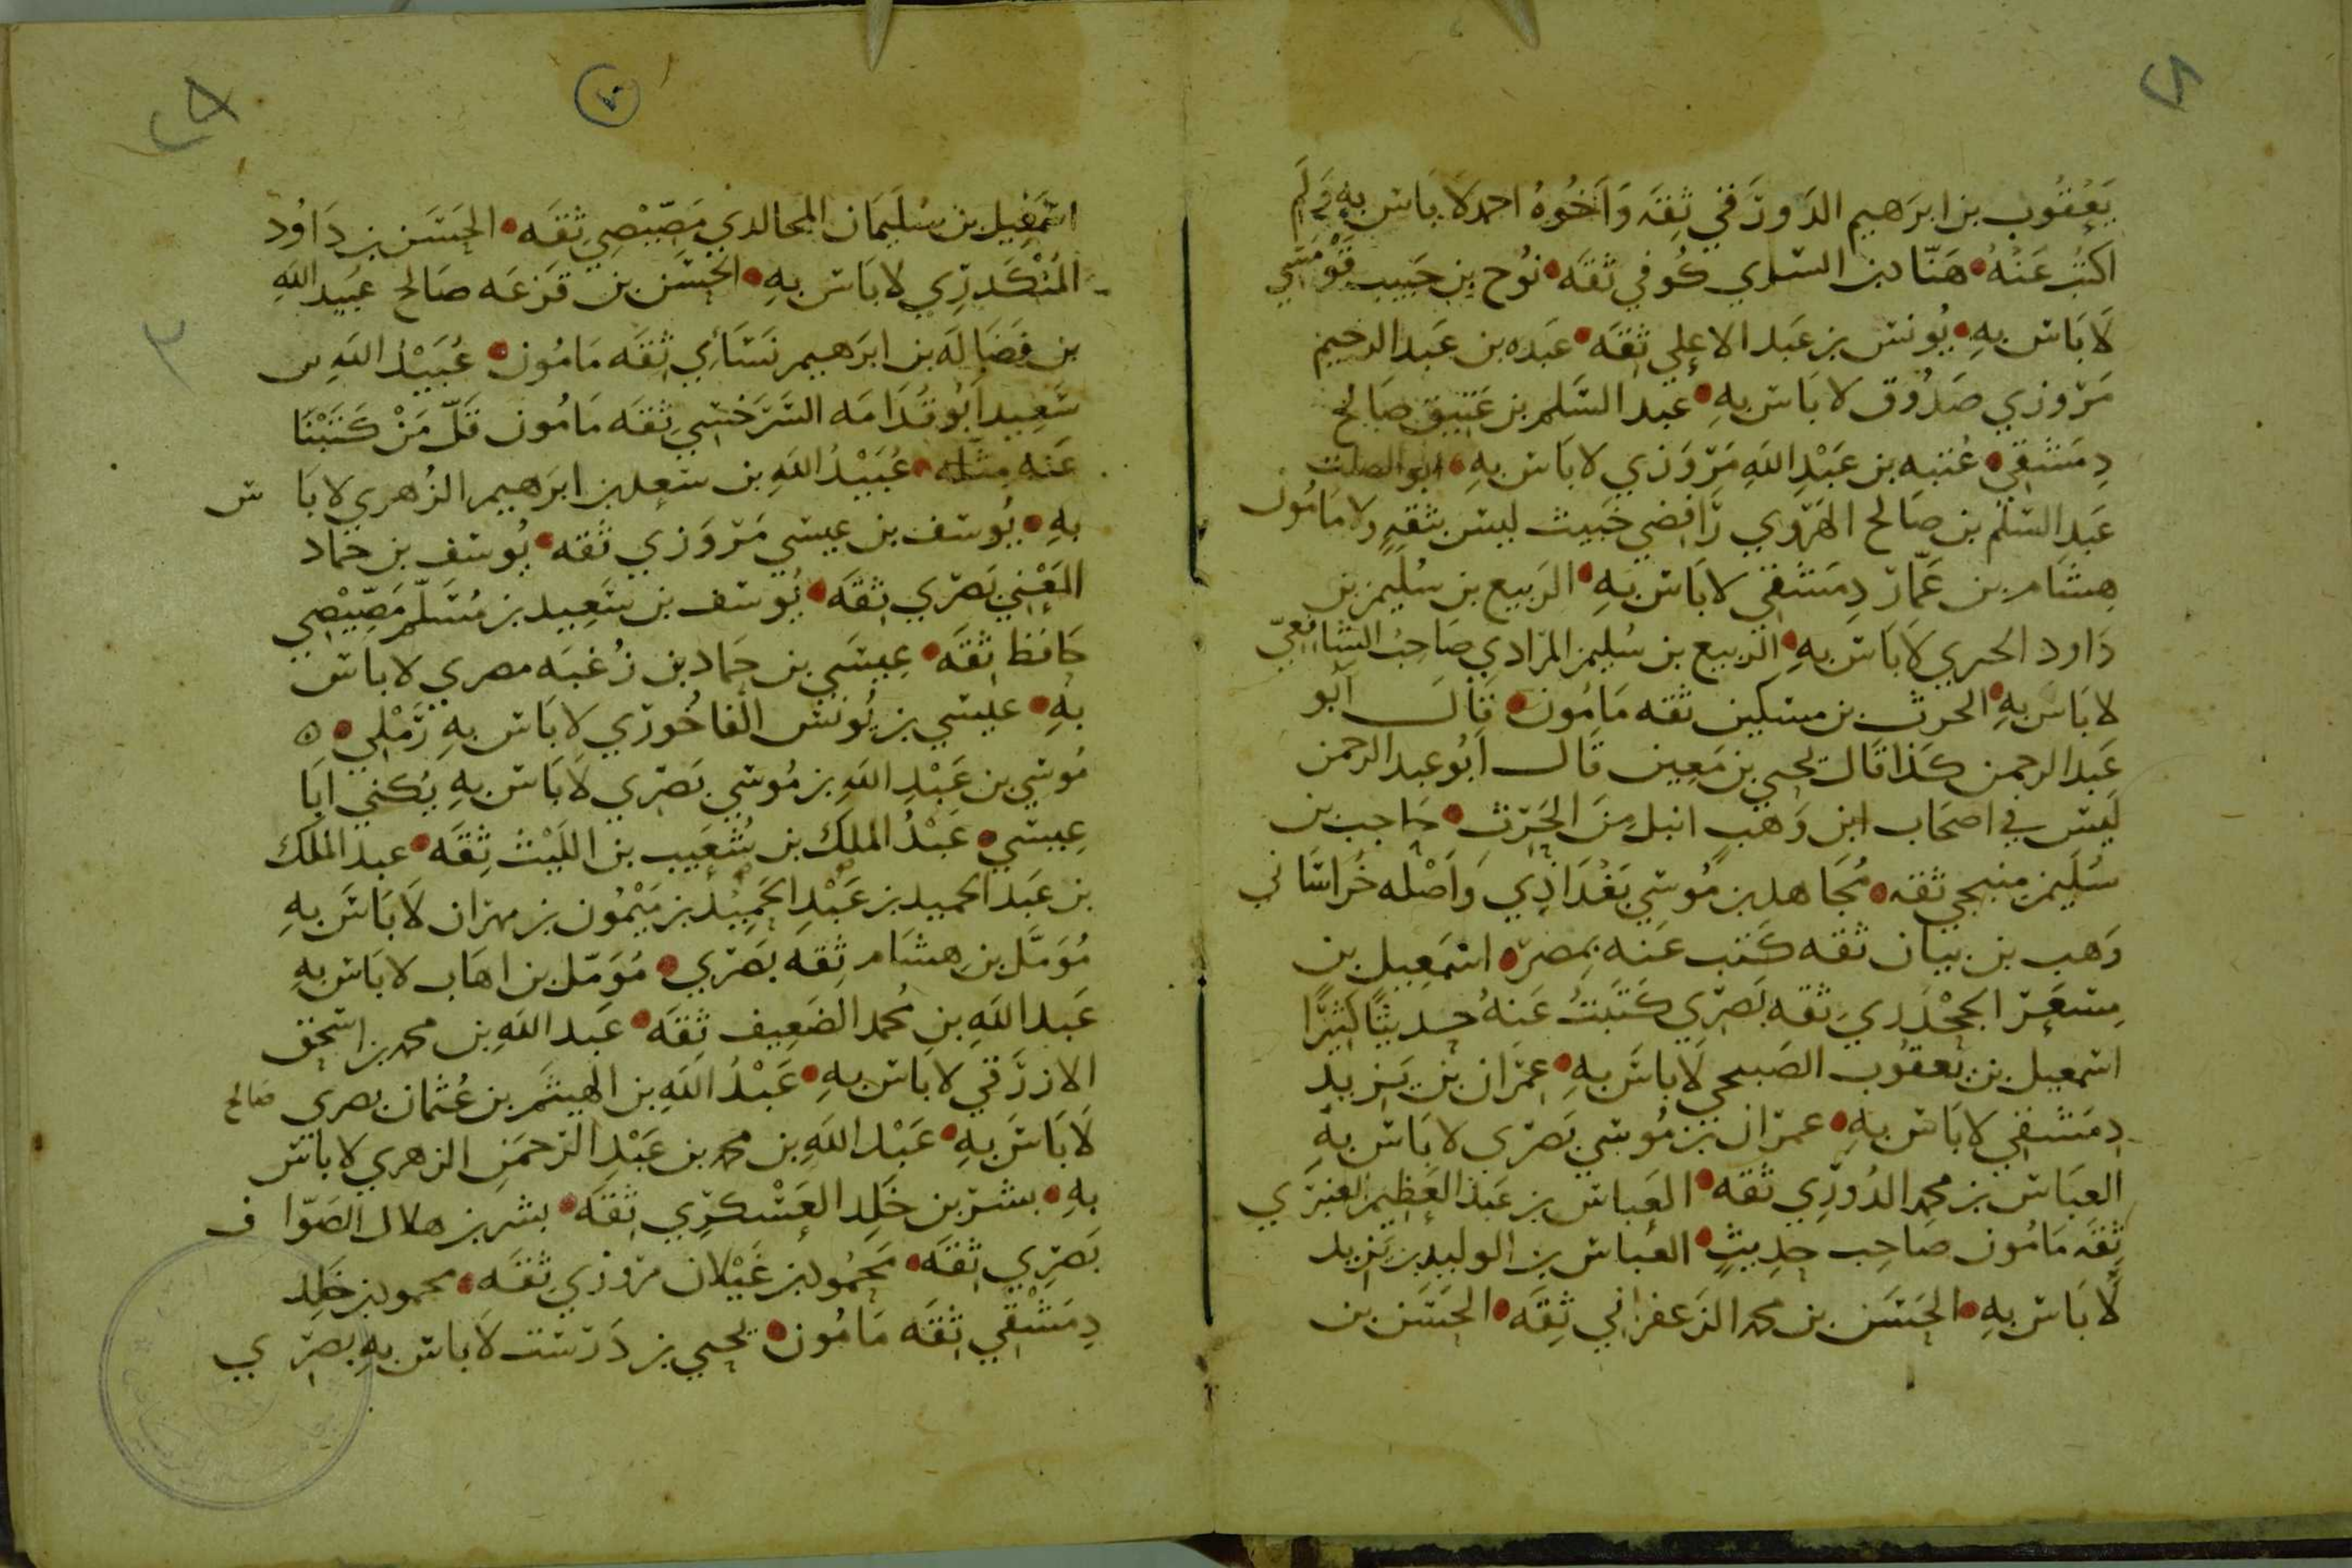 يَعْقُوب بن ابرَهيم الدَورَقي ثِقَه وَاَخُوهُ احمد لَا بَاس بِهِ وَلَم
اكتُب عَنْهُ هَنّاد بن السَري كُوفي ثقَه نوُح بن حَبيب قَوْمَسِي
لَا بَاس بهِ يُونس بن عَبد الاعلي ثِقَه عَبَده بن عَبد الرحيم
مَرْوزي صَدُوق لا بَاس بهِ عبد السَلم بن عَتيق صَالح
دِمَشقي عُتبه بن عَبْدِ اللهِ مَرْوَزي لا بَاس بهِ ابو الصلت
عَبد السَلم بن صَالح الهَرَوي رَافضي خَبيث ليسَ بثقهٍ وَلا مَامُون
هِشام بن عَمّار دِمَشقي لا بَاس بهِ الرَبيع بن سُليمن بن
دَاود الحيزي لَا بَاس بهِ الربيع بن سُليمن المرَادي صَاحِبُ الشافعيّ
لا بَاسَ بهِ الحرث بن مسكين ثقه مَامُون قَال ابو
عَبد الرحمن كَذا قَال يحيي بن مَعِين قَال ابُو عبد الرحمن
لَيسَ في اصحَاب ابن وَهبٍ انبل مِنَ الحَرث حَاجب بن
سُليمن منبجي ثقه مُجَاهد بن مُوسي بَغْدَاذِي وَاصْله خُرَاسَاني
وَهب بن بيان ثقه كَتَب عَنه بمصر اسمَعِيل بن
مِسْعَر الجَحْدَري ثقه بَصْرِي كَتَبتُ عَنهُ حديثًا كثيرًا
اسمعيل بن يَعقوب الصبحي لَا بَاسَ بهِ عِمرَان بن يَزيد
دِمَشقي لا بَاس بهِ عمران بن مُوسي بَصْري لا بَاس بهِ
العبَاس بن محمد الدُوْرِي ثقه العَباس بن عَبد العَظيم العنبَري
ثِقَه مَامُون صَاحِب حدِيثٍ العَباس بن الوليد بن يَزيد
لَا بَاس بهِ الحَسَن بن محمد الزعفراني ثِقَه الحَسَن بن
اسْمَعِيل بن سُليمَان المجالدي مَصّيْصِي ثقَه الحَسَن بن دَاوُد
المُنكَدِري لا بَاس بهِ الحسَن بن قَزعَه صَالح عبَيد اللهِ
بن فَضَالَه بن ابرَهيم نسَائي ثِقَه مَامُون عُبَيْدُ اللهِ بن
سَعِيد ابُو قُدَامَه السَرَخسِي ثِقَه مَامُون قَلّ مَنْ كَتَبْنَا
عَنه مثله عُبَيْدُ اللهِ بن سَعد بن ابرَهيم الزُهري لا بَا س
بهِ يُوسف بن عيسَي مَرْوَزي ثَقه يُوسف بن حَماد
المَعْني بَصْرِي ثِقَه يُوسف بن سَعِيد بن مُسَلّم مَصّيْصِي
حَافظ ثِقَه عِيسَي بن حَماد بن زُغبَه مصري لا باس
بهِ عيسي بن يُونس الفَاخُوري لا بَاس بهِ رَمْلي ه
مُوسي بن عَبْدِ اللهِ بن مُوسي بَصْري لَا بَاس بهِ يُكني ابَا
عِيسي عَبْدُ الملك بن شُعَيب بن اللَيْث ثِقَه عبد الملك
بن عَبد الحميد بن عَبْدِ الحَمِيْد بن مَيْمُون بن مهران لَا بَاسَ بهِ
مُؤمَّل بن هِشَام ثِقه بَصْري مُؤمّل بن اهَاب لا بَاس بهِ
عَبد اللهِ بن مُحمد الضَعِيف ثِقَه عَبد اللهِ بن محمد بن اسحَق
الاذرَقي لا بَاس بهِ عَبْدُ اللهِ بن الهيثَم بن عُثمَان بصري صَالح
لَا بَاسَ بهِ عَبْد اللهِ بن محمد بن عَبْدِ الرَحمَنِ الزهري لا باس
بهِ بشر بن خَلِد العَسْكرِي ثِقَه بشر بن هلال الصَوّا ف
بَصْرِي ثِقَه مَحمُود بن غَيْلان مروزي ثقَه محمود بن خَلِد
دِمَشْقي ثِقَه مَامُون يحيي بن دَرسَت لَا بَاس بهِ بصْري